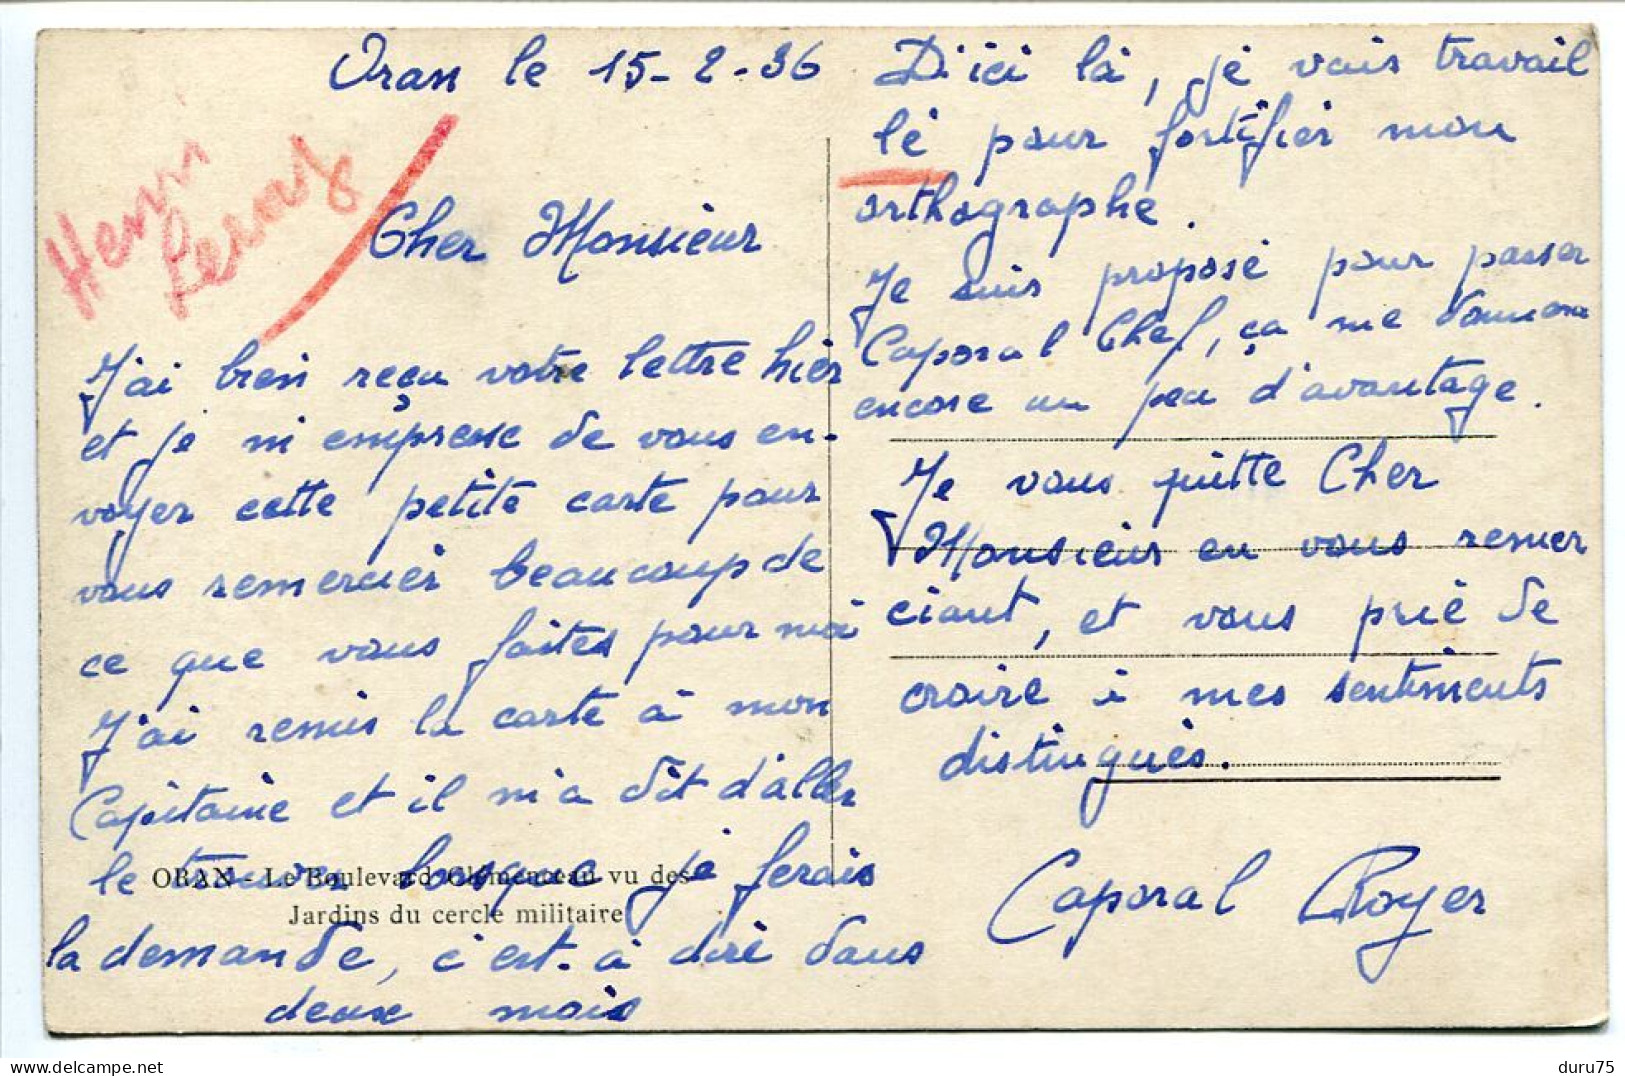 Oran le 15-2-36
Henri
Leroy
Cher Monsieur
J'ai bien reçu votre lettre hier
et je m'empresse de vous en-
voyer cette petite carte pour
vous remercier beaucoup de
ce que vous faites pour moi
J'ai remis la carte à mon
Capitaine et il m'a dit d'aller
le trouver losque je ferais
la demande, c'est-à dire dans
deux mois
ORAN - Le Boulevard Clémenceau vu des
Jardins du cercle militaire
D'ici là, je vais travail
lé pour fortifier mon
orthographe.
Je suis proposé pour passer
Caporal Chef, ça me donnera
encore un peu d'avantage.
Je vous quitte Cher
Monsieur en vous remer
ciant, et vous prie de
croire à mes sentiments
distingués.
Caporal Royer
delcampe.net
duru75